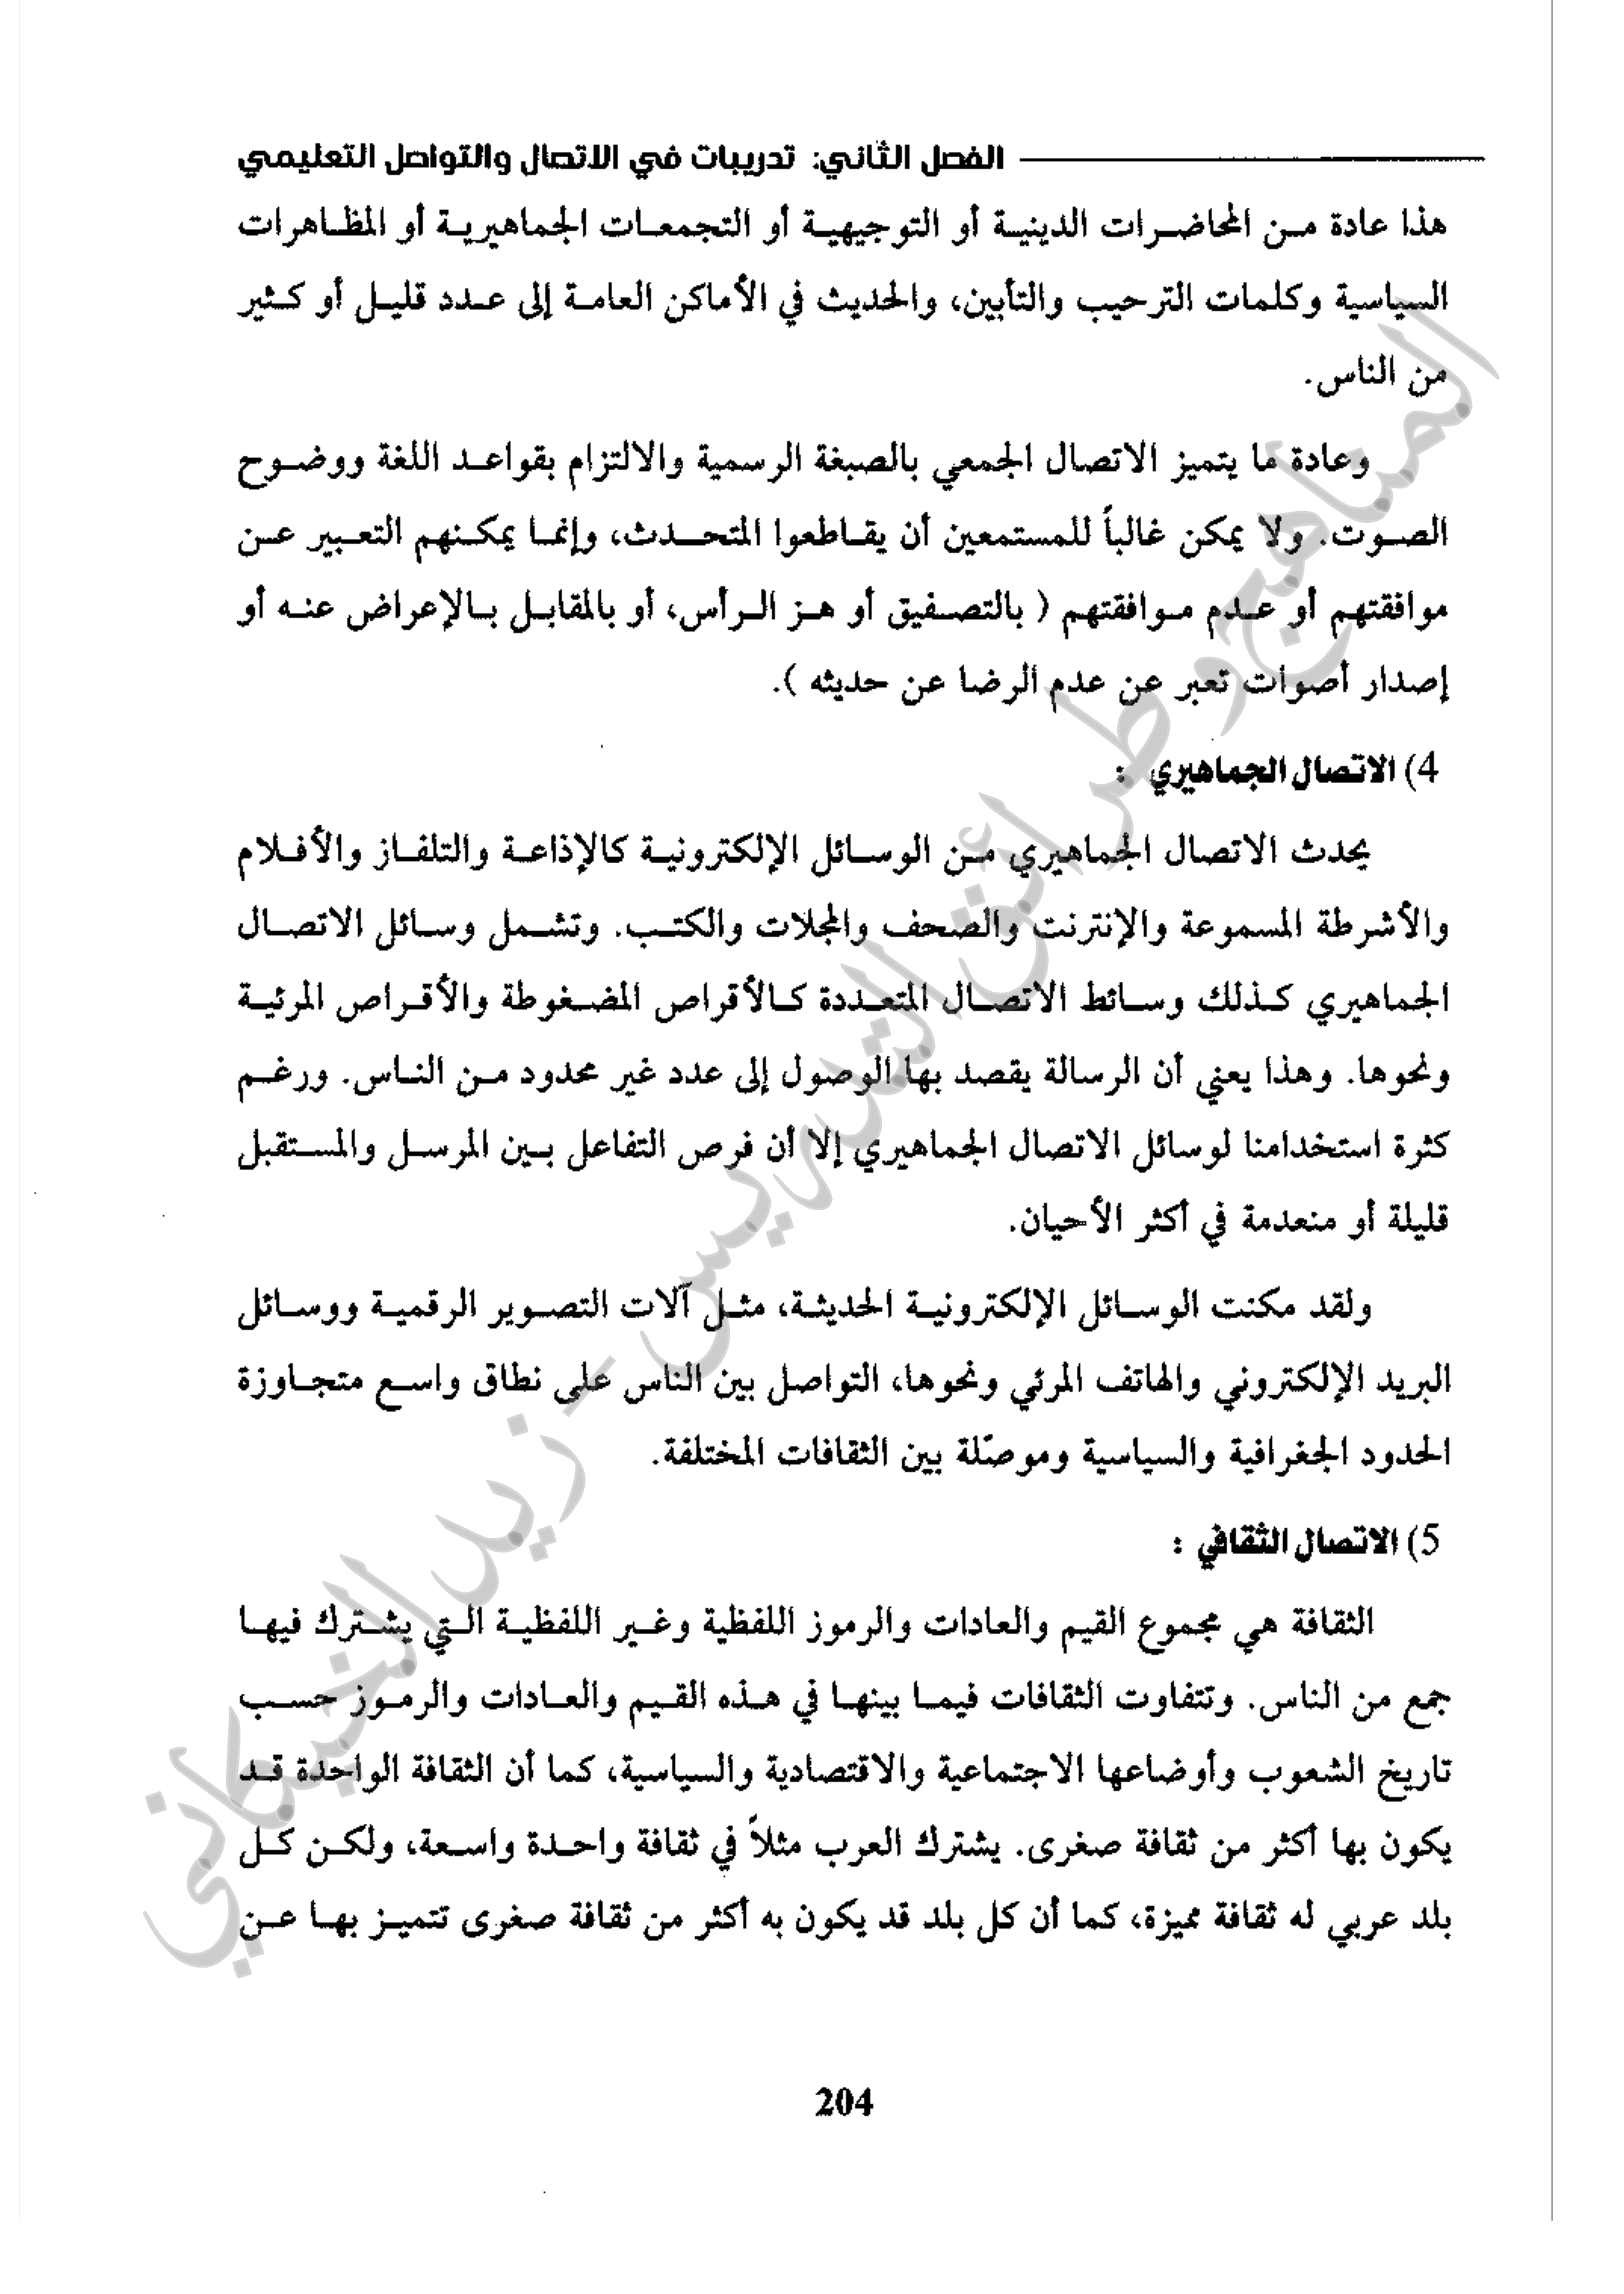 الفصل الثاني: تدريبات في الاتصال والتواصل التعليمي
هذا عادة من المحاضرات الدينية أو التوجيهية أو التجمعات الجماهيرية أو المظاهرات
السياسية وكلمات الترحيب والتأبين، والحديث في الأماكن العامة إلى عدد قليل أو كثير
من الناس.
وعادة ما يتميز الاتصال الجمعي بالصبغة الرسمية والالتزام بقواعد اللغة ووضوح
الصوت. ولا يمكن غالباً للمستمعين أن يقاطعوا المتحدث، وإنما يمكنهم التعبير عن
موافقتهم أو عدم موافقتهم ( بالتصفيق أو هز الرأس، أو بالمقابل بالإعراض عنه أو
إصدار أصوات تعبر عن عدم الرضا عن حديثه ).
4) الاتصال الجماهيري :
يحدث الاتصال الجماهيري من الوسائل الإلكترونية كالإذاعة والتلفاز والأفلام
والأشرطة المسموعة والإنترنت والصحف والمجلات والكتب. وتشمل وسائل الاتصال
الجماهيري كذلك وسائط الاتصال المتعددة كالأقراص المضغوطة والأقراص المرئية
ونحوها. وهذا يعني أن الرسالة يقصد بها الوصول إلى عدد غير محدود من الناس. ورغم
كثرة استخدامنا لوسائل الاتصال الجماهيري إلا أن فرص التفاعل بين المرسل والمستقبل
قليلة أو منعدمة في أكثر الأحيان.
ولقد مكنت الوسائل الإلكترونية الحديثة، مثل آلات التصوير الرقمية ووسائل
البريد الإلكتروني والهاتف المرئي ونحوها، التواصل بين الناس على نطاق واسع متجاوزة
الحدود الجغرافية والسياسية وموصّلة بين الثقافات المختلفة.
5) الاتصال الثقافي :
الثقافة هي مجموع القيم والعادات والرموز اللفظية وغير اللفظية التي يشترك فيها
جمع من الناس. وتتفاوت الثقافات فيما بينها في هذه القيم والعادات والرموز حسب
تاريخ الشعوب وأوضاعها الاجتماعية والاقتصادية والسياسية، كما أن الثقافة الواحدة قد
يكون بها أكثر من ثقافة صغرى. يشترك العرب مثلاً في ثقافة واحدة واسعة، ولكن كل
بلد عربي له ثقافة مميزة، كما أن كل بلد قد يكون به أكثر من ثقافة صغرى تتميز بها عن
204
المناهج وطرائق التدريس - زيد الخيكاني